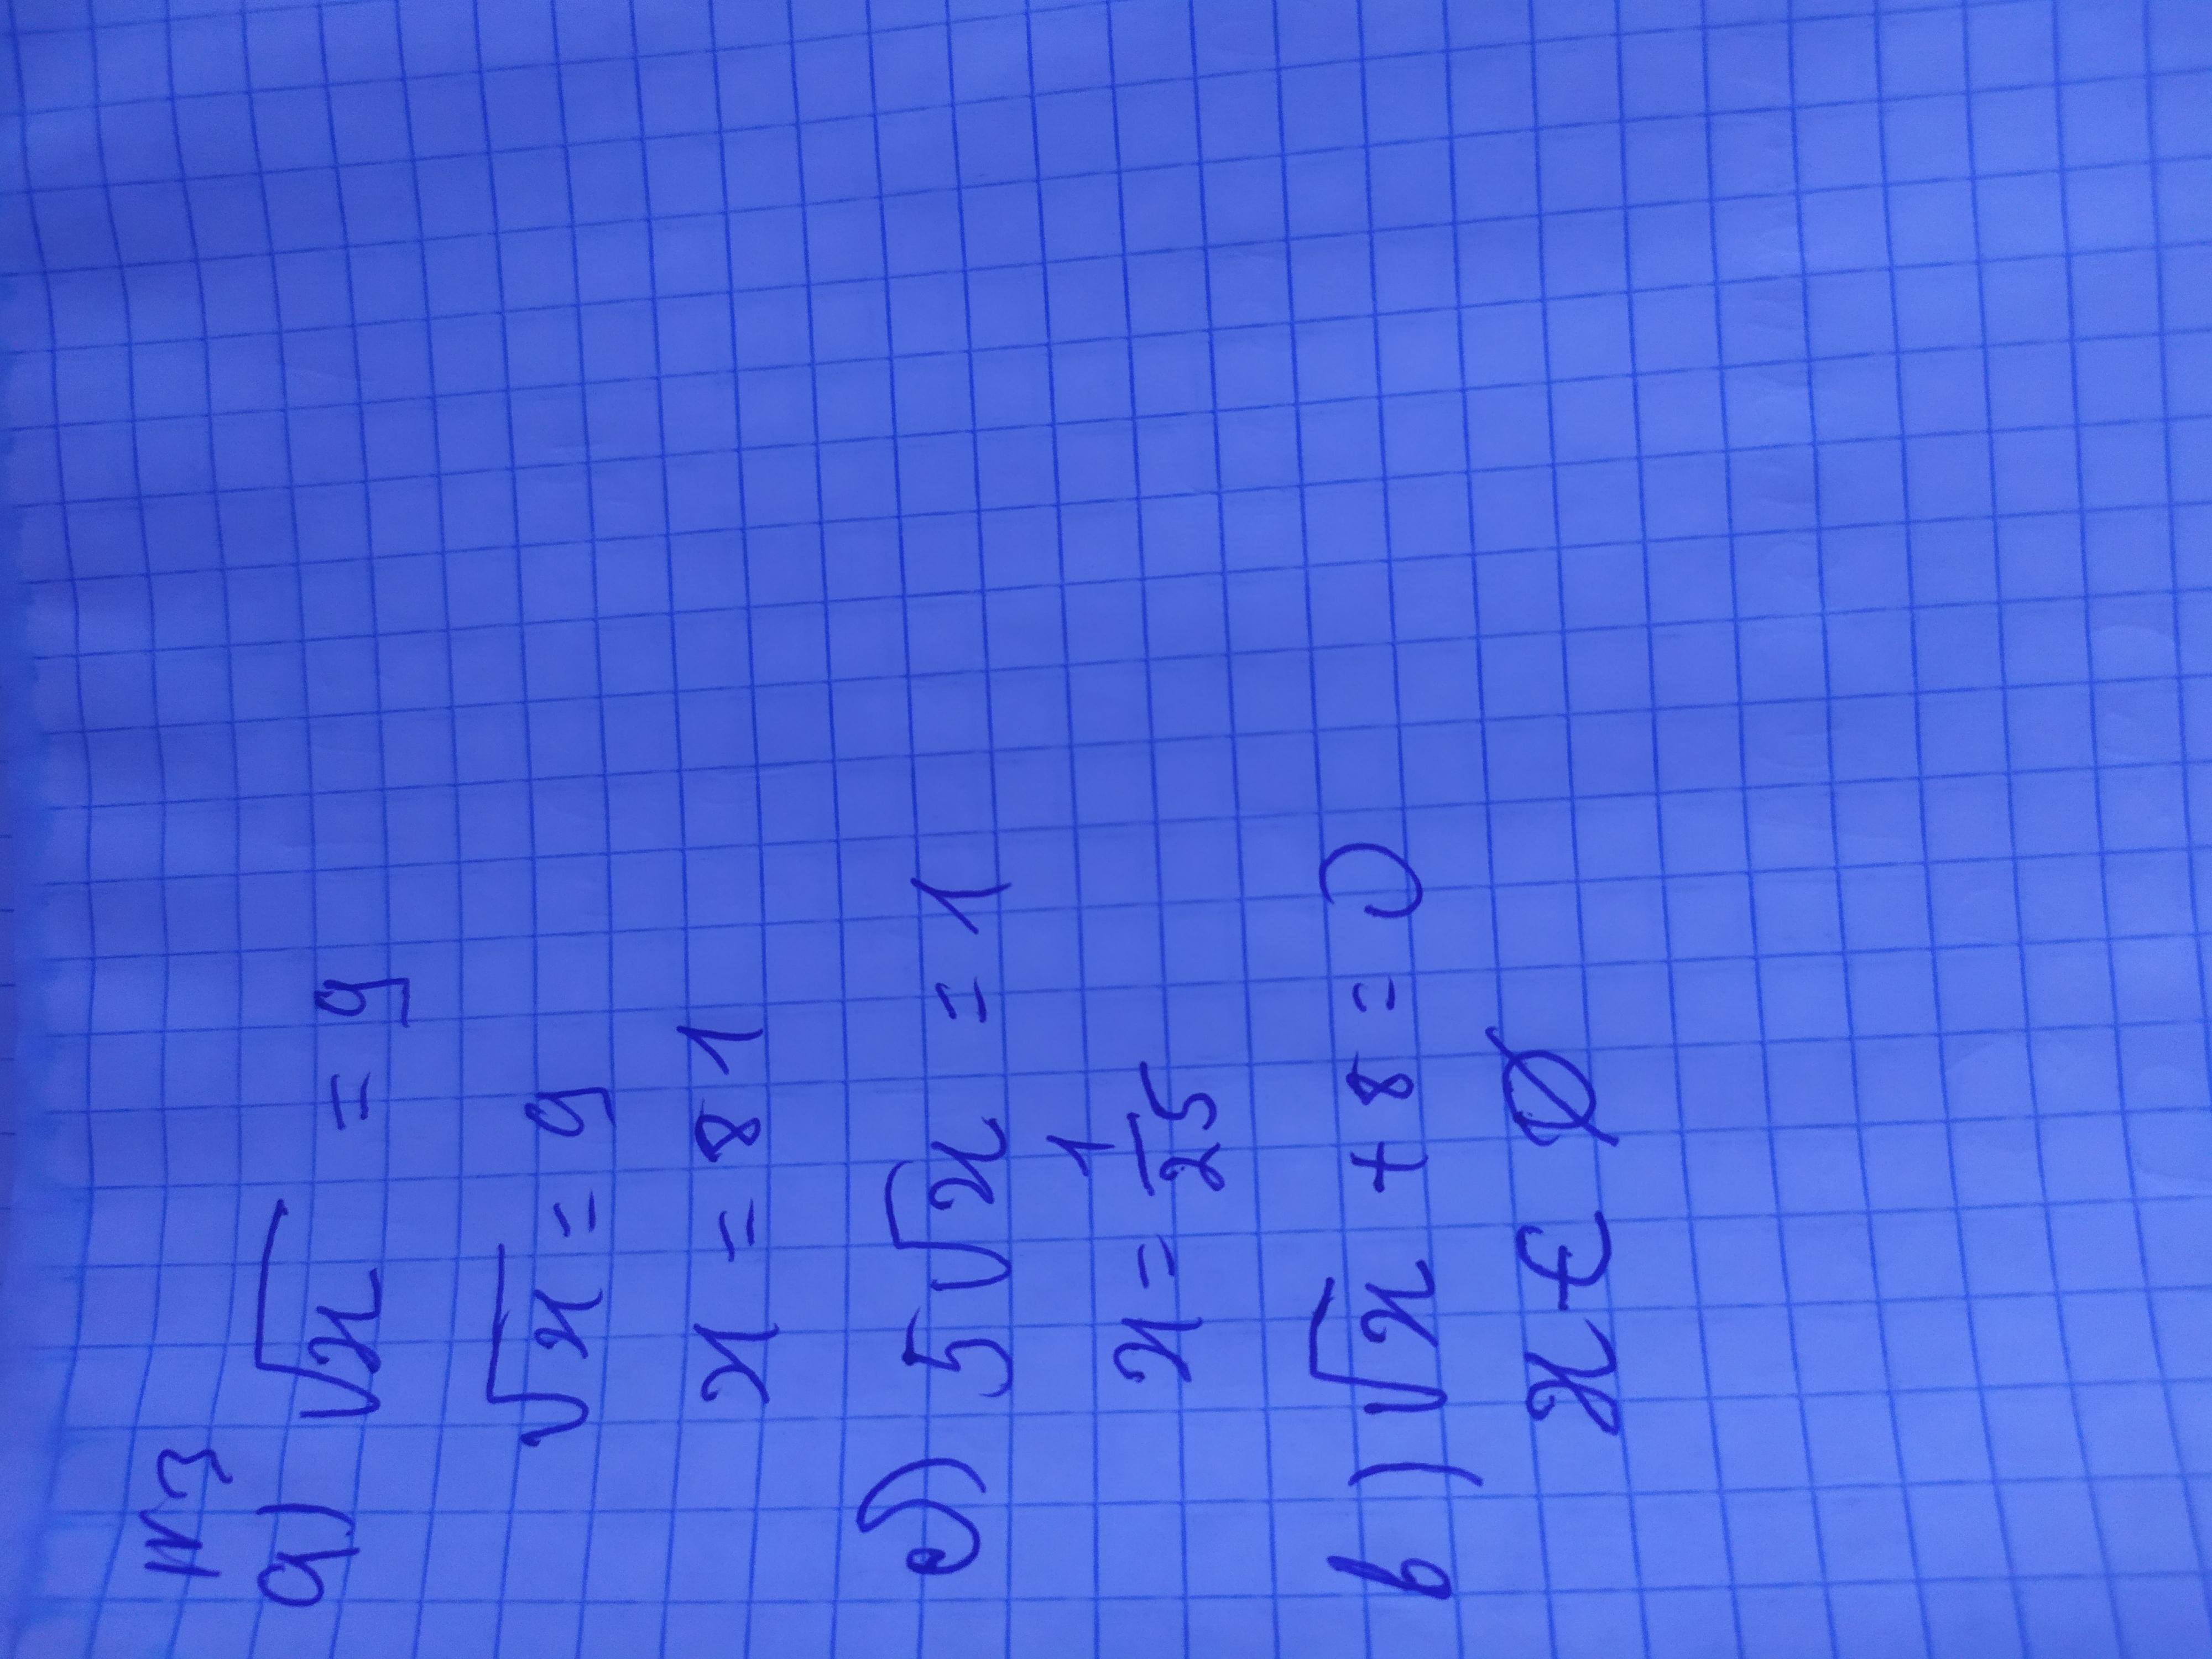 №3
а) √x = 9
√x = 9
x = 81
б) 5√x = 1
x = 1/25
в) √x + 8 = 0
x ∈ ∅